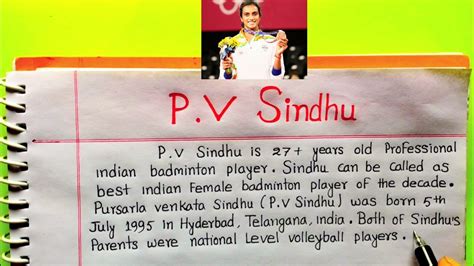 P.V Sindhu
P.V Sindhu is 27+ years old Professional
indian badminton player. Sindhu can be called as
best indian Female badminton player of the decade.
Pursarla venkata Sindhu (P.V Sindhu) was born 5th
July 1995 in Hyderbad, Telangana, india. Both of Sindhu's
Parents were national Level volleyball players.